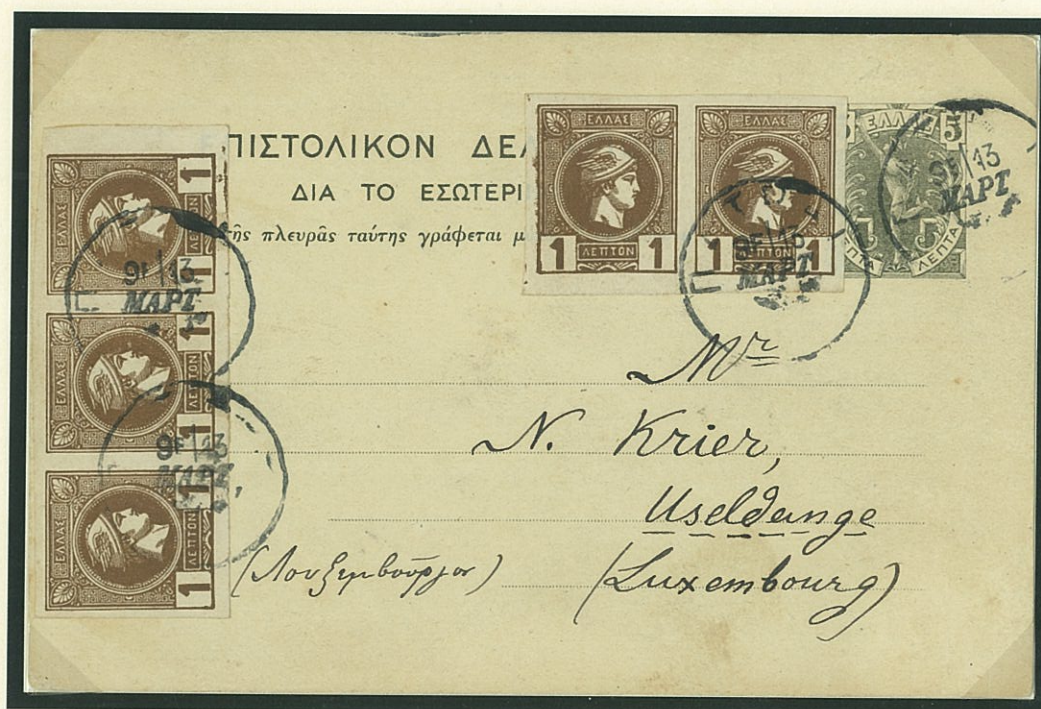 ΠΙΣΤΟΛΙΚΟΝ ΔΕΛ
ΔΙΑ ΤΟ ΕΣΩΤΕΡΙ
τῆς πλευρᾶς ταύτης γράφεται μ
ΕΛΛΑΣ
1 ΛΕΠΤΟΝ 1
ΕΛΛΑΣ
1 ΛΕΠΤΟΝ 1
ΕΛΛΑΣ
5
ΛΕΠΤΑ ΛΕΠΤΑ
13
ΜΑΡΤ
13
ΜΑΡΤ
ΕΛΛΑΣ
1 ΛΕΠΤΟΝ 1
13
ΜΑΡΤ
ΕΛΛΑΣ
1 ΛΕΠΤΟΝ 1
13
ΜΑΡΤ
ΕΛΛΑΣ
1 ΛΕΠΤΟΝ 1
Mr
N. Krier,
Useldange
(Λουξεμβοῦργον) (Luxembourg)